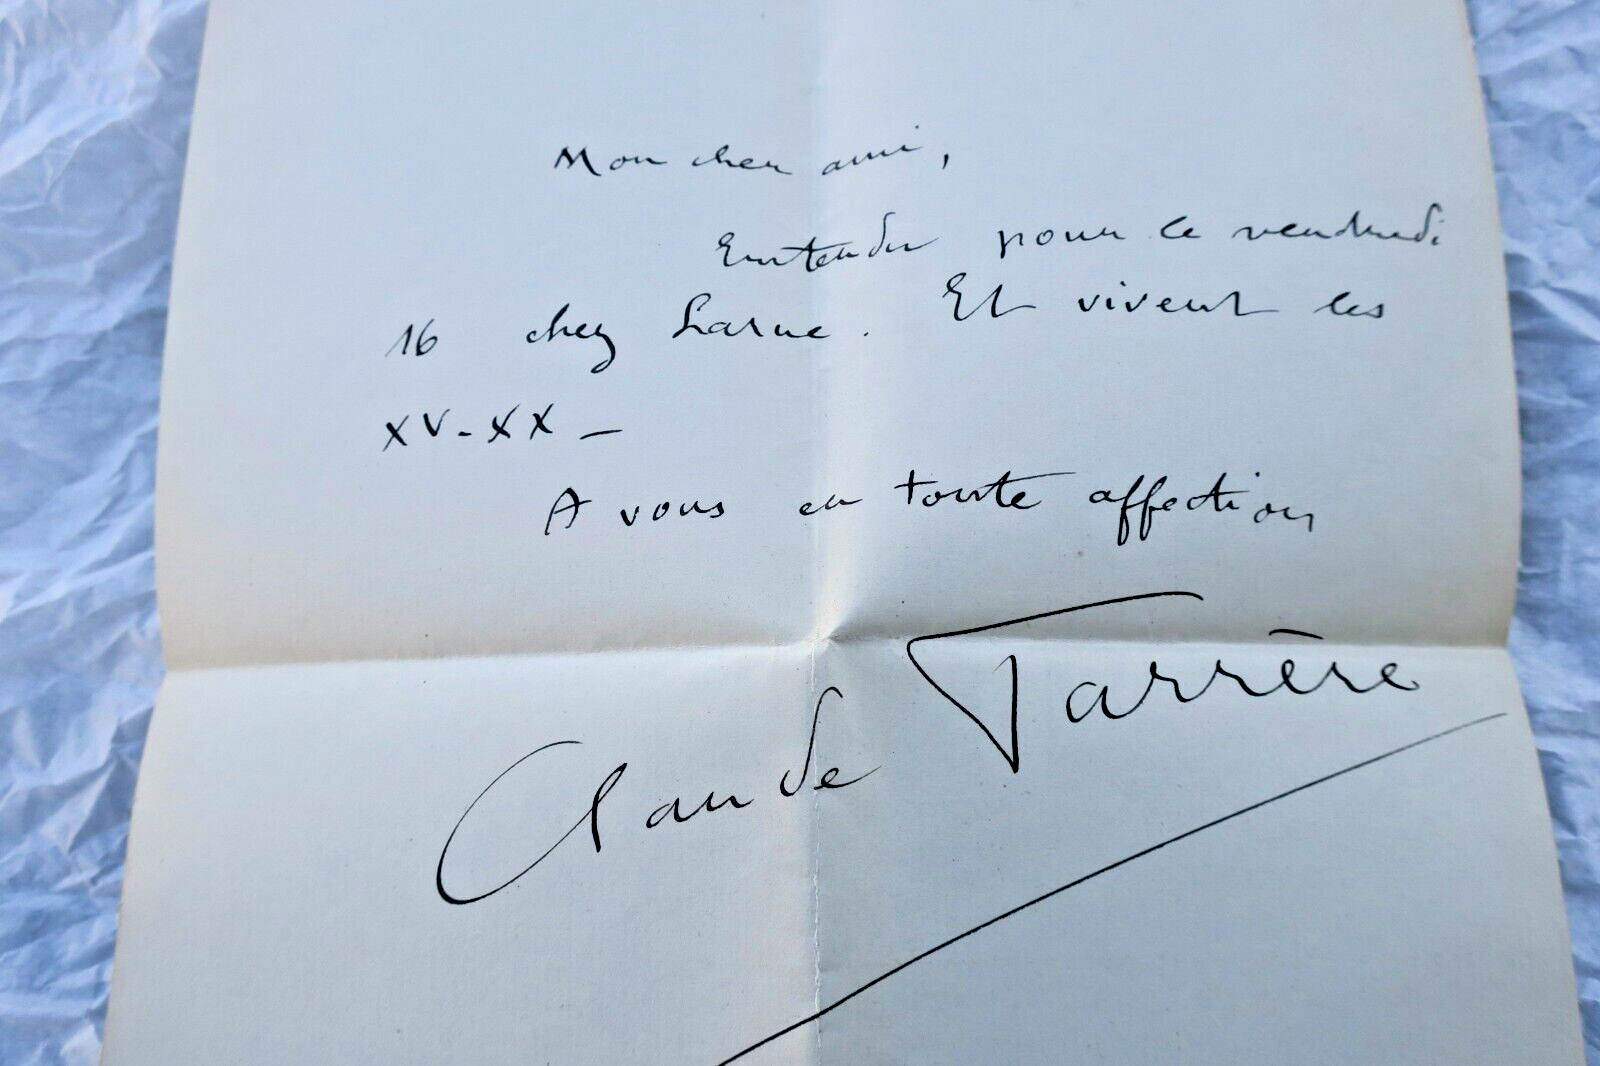 Mon cher ami,
Entendu pour ce vendredi
16 chez Larue. Et vivent les
XV-XX —
A vous en toute affection
Claude Farrère